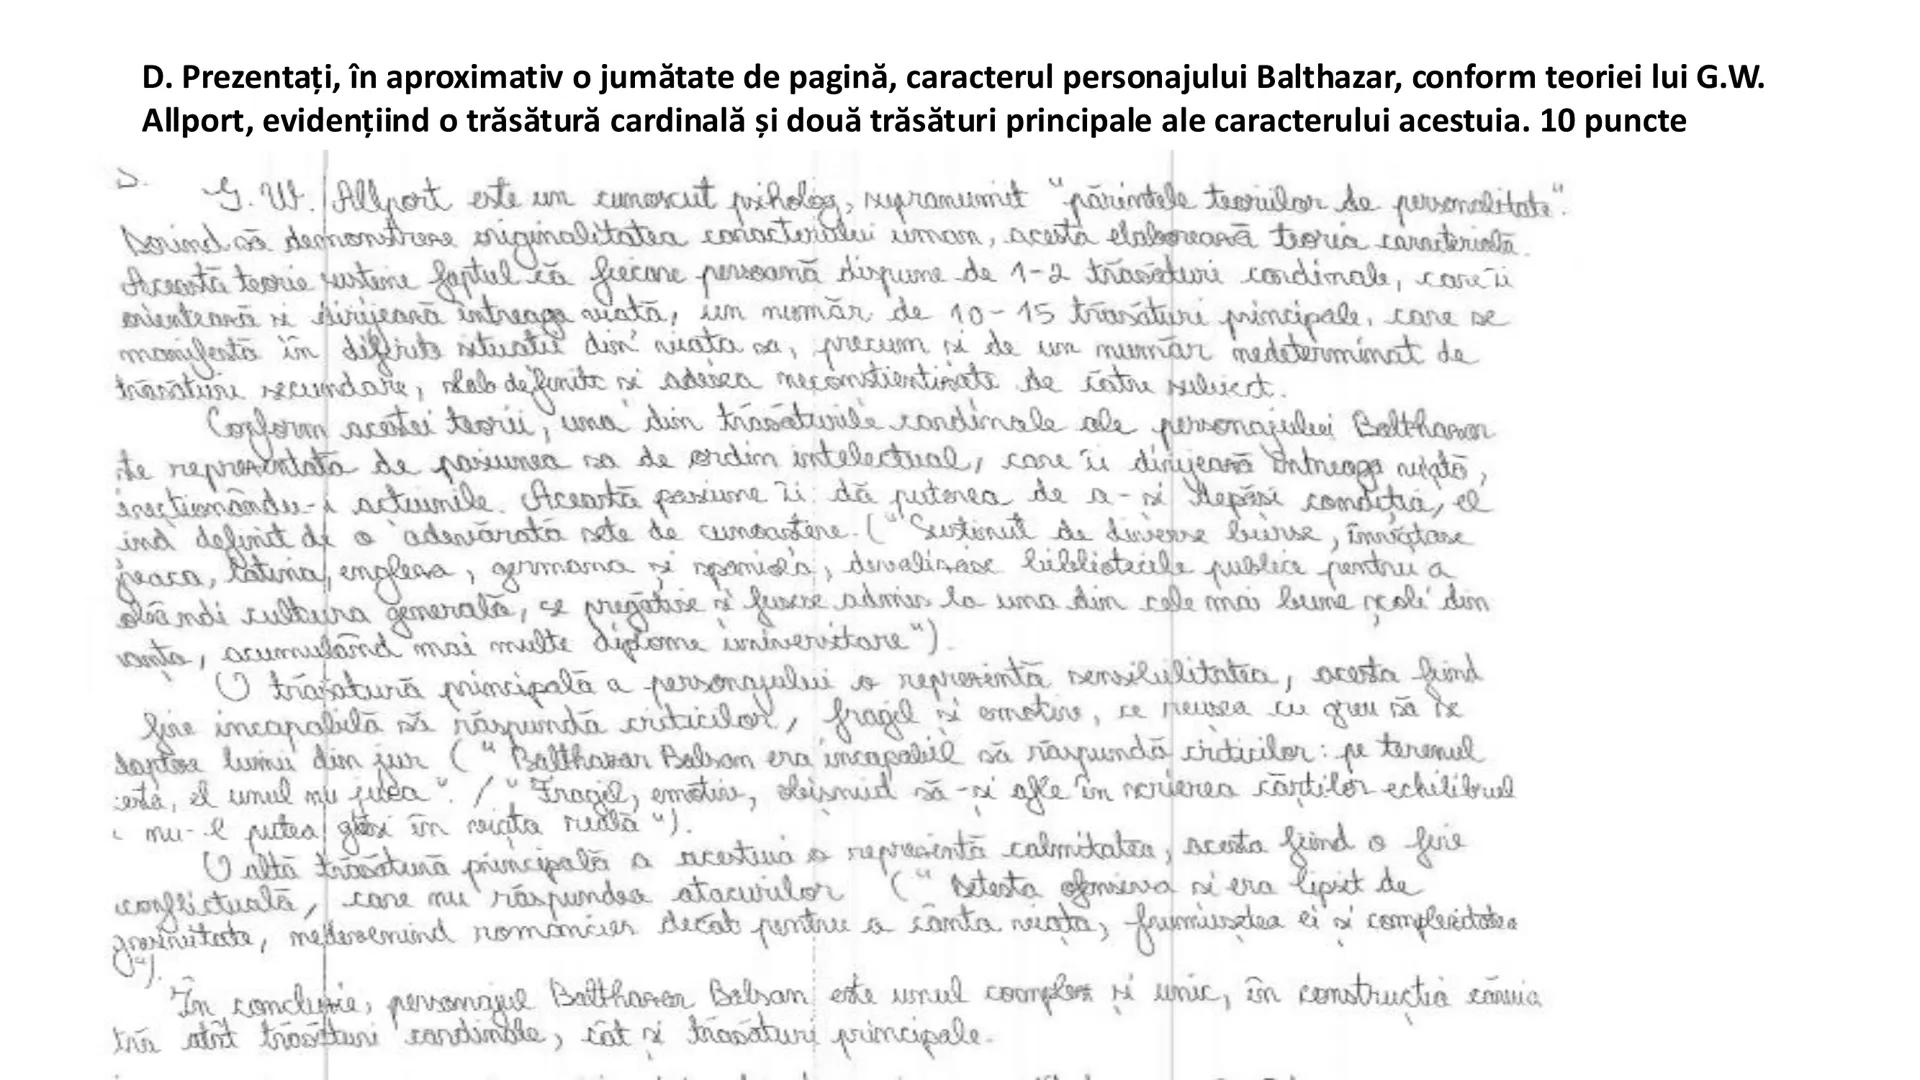 D. Prezentați, în aproximativ o jumătate de pagină, caracterul personajului Balthazar, conform teoriei lui G.W.
Allport, evidențiind o trăsătură cardinală și două trăsături principale ale caracterului acestuia. 10 puncte
D. G. W. Allport este un cunoscut psiholog, supranumit "părintele teoriilor de personalitate".
Dorind să demonstreze originalitatea caracterului uman, acesta elaborează teoria caracterială.
Această teorie susține faptul că fiecare persoană dispune de 1-2 trăsături cardinale, care îi
orientează și dirijează întreaga viață, un număr de 10-15 trăsături principale, care se
manifestă în diferite situații din viața sa, precum și de un număr nedeterminat de
trăsături secundare, slab definite și adesea neconștientizate de către subiect.
Conform acestei teorii, una din trăsăturile cardinale ale personajului Balthazar
te reprezentată de pasiunea sa de ordin intelectual, care îi dirijează întreaga viață,
irecționându-i acțiunile. Această pasiune îi dă puterea de a-și depăși condiția, el
ind definit de o adevărată sete de cunoaștere. ("Susținut de diverse burse, învățase
greaca, latina, engleza, germana și spaniola, devalizase bibliotecile publice pentru a
dobândi cultura generală, se pregătise și fusese admis la una din cele mai bune școli din
ranța, acumulând mai multe diplome universitare").
O trăsătură principală a personajului o reprezintă sensibilitatea, acesta fiind
fire incapabilă să răspundă criticilor, fragil și emotiv, ce reușea cu greu să se
adapteze lumii din jur ("Balthazar Balsan era incapabil să răspundă criticilor: pe terenul
cesta, el unul nu juca". / "Fragil, emotiv, obișnuit să-și afle în scrierea cărților echilibrul
e nu-l putea găsi în viața reală").
O altă trăsătură principală a acestuia o reprezintă calmitatea, acesta fiind o fire
conflictuală, care nu răspundea atacurilor ("Detesta ofensiva și era lipsit de
gresivitate, nedevenind romancier decât pentru a cânta viața, frumusețea ei și complexitatea
").
În concluzie, personajul Balthazar Balsan este unul complex și unic, în construcția căruia
tră atât trăsături cardinale, cât și trăsături principale.